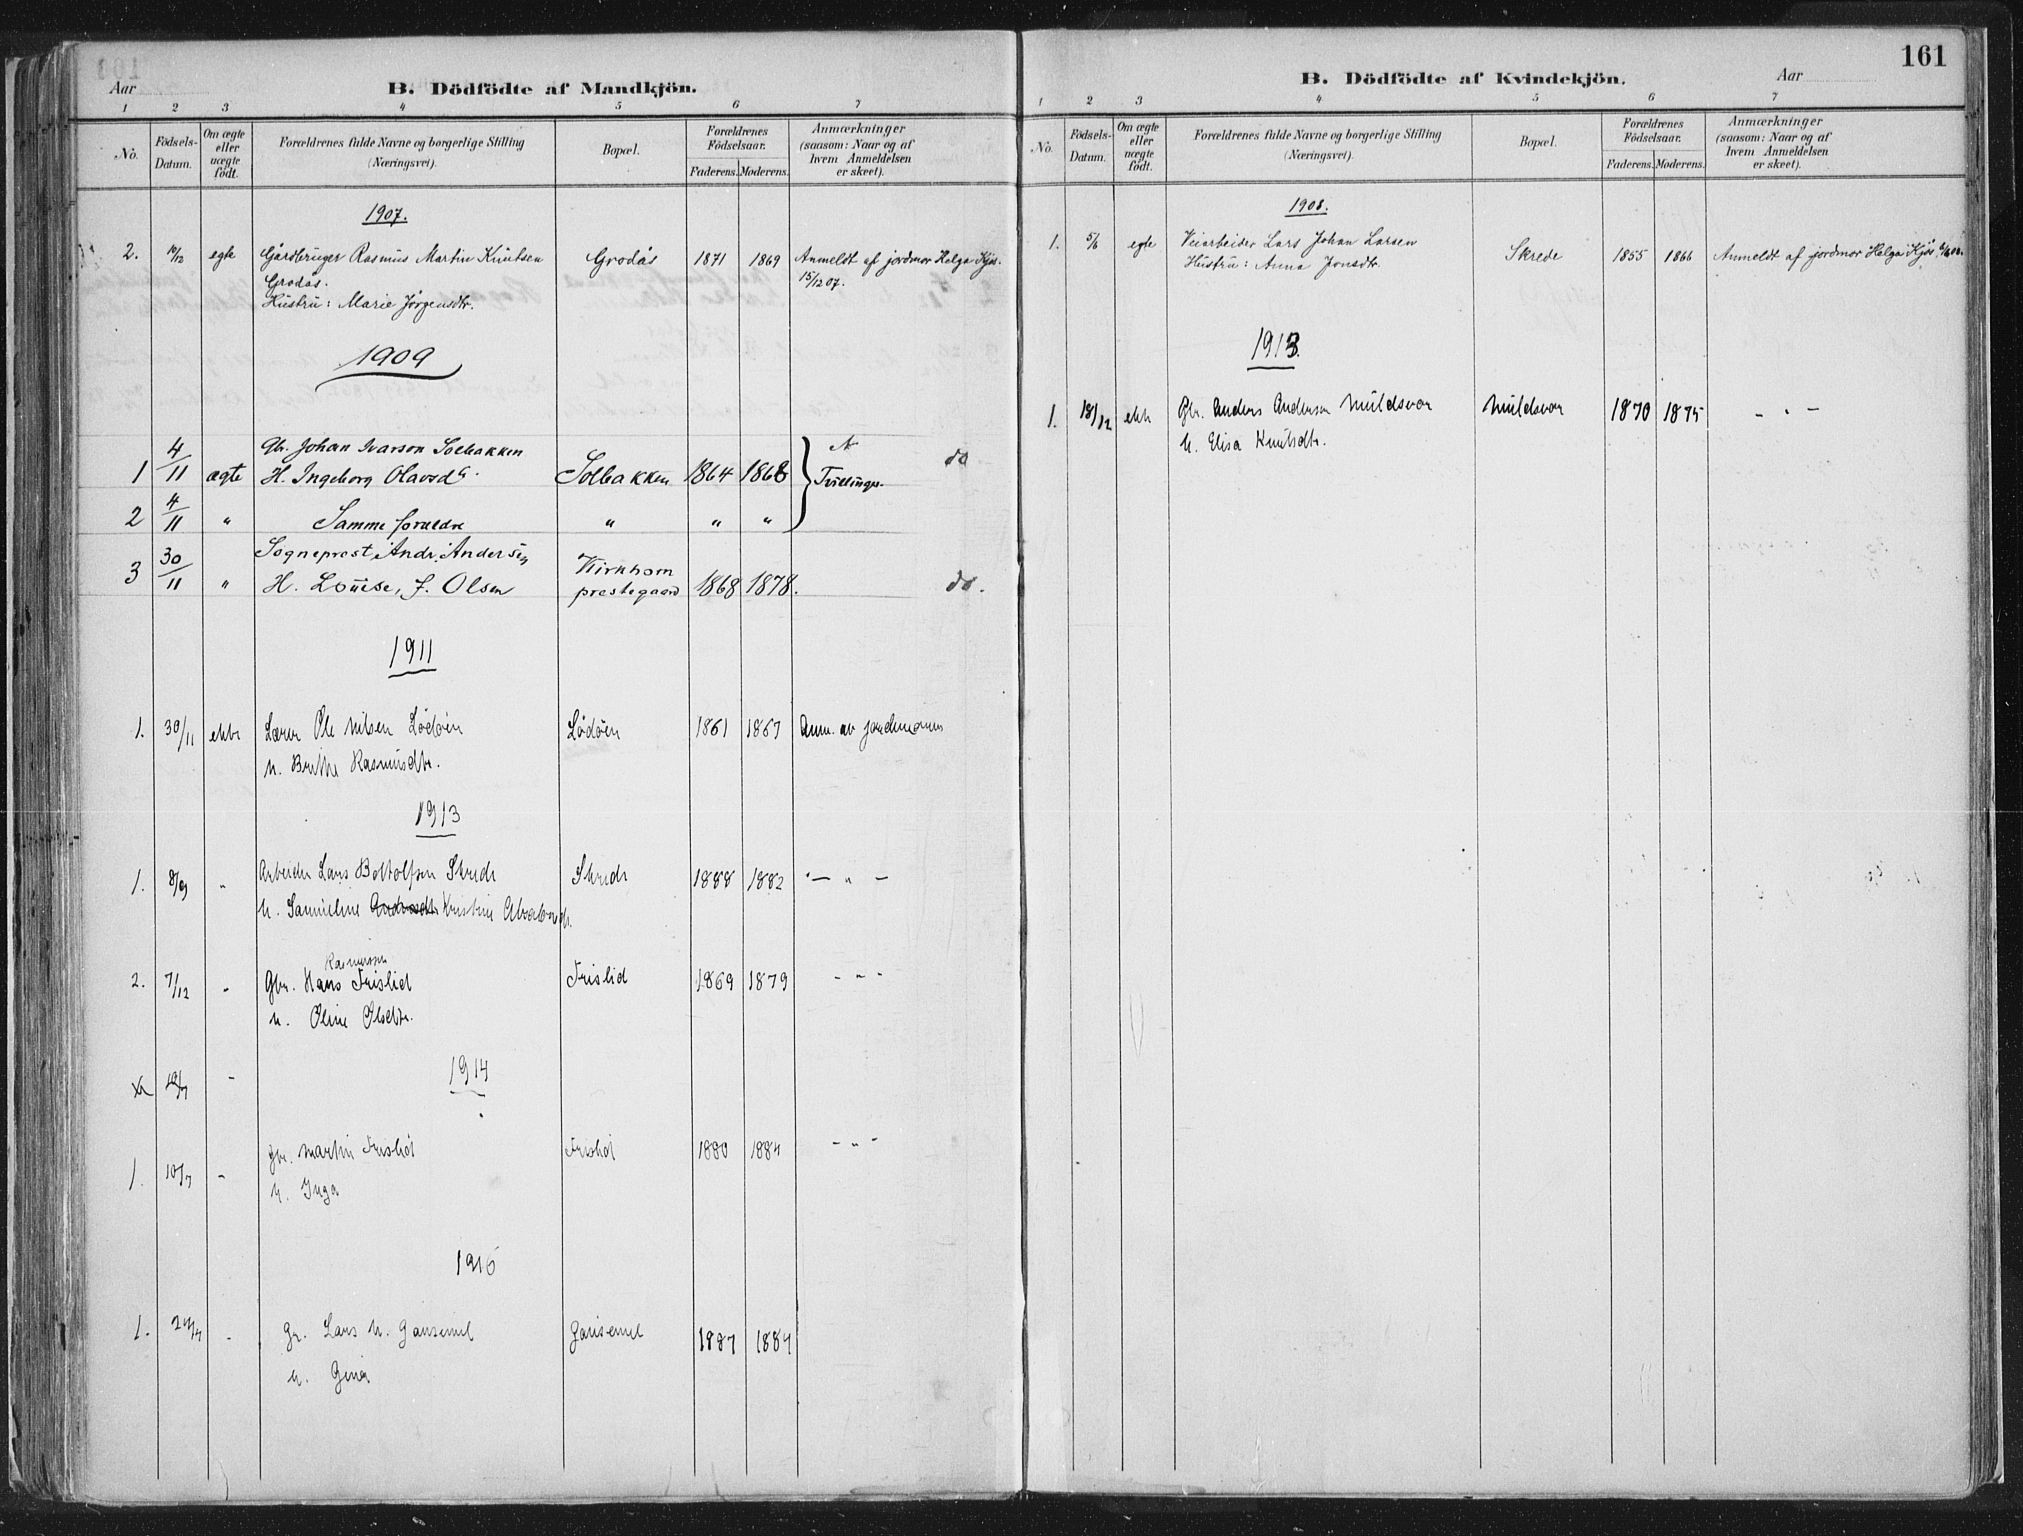 161
Aar
B. Dödfödte af Mandkjön.
1 2 3 4 5 6 7
No.
Födsels-Datum.
Om ægte eller uægte födt.
Forældrenes fulde Navne og borgerlige Stilling (Næringsvei).
Bopæl.
Forældrenes Födselsaar.
Faderens. Moderens.
Anmærkninger (saasom: Naar og af hvem Anmeldelsen er skeet).
1907.
2. 10/12 egte Gårdbruger Rasmus Martin Knutsen Grodås 1871 1869 Anmeldt af jordmor Helga Kjøs.
Grodås. 15/12 07.
Hustru: Marie Jørgensdtr.
1909
4/11 Gbr. Johan Ivarson Solbakken
1 ægte H. Ingeborg Olavsd. Solbakken 1864 1868 Tvillinger. do
2 4/11 " Samme foreldre " " "
30/11 Sogneprest Andr. Andersen Kirkhorn
3 " H. Louise, J. Olsen prestegaard 1868 1878. do.
1911
1. 30/11 ekte Lærer Ole Nilsen Lödöen Lödöen 1861 1867 Anm. av jordmoren
h. Brithe Rasmusdtr.
1913
1. 8/9 " Arbeider Lars Bottolfsen Skrede Skrede 1888 1882 — " —
h. Samueline Kristine
Rasmussen
2. 7/12 " Gbr. Hans Frislid Frislid 1869 1879 - " -
h. Oline Olsdtr.
1914
Gbr. Martin Frislid Frislid 1880 1884 - " -
1. 10/7 " h. Inga
1916
1. " Gr. Lars h. Gausemel Gausemel 1887 1884
h. Gina
B. Dödfödte af Kvindekjön.
Aar
1 2 3 4 5 6 7
No.
Födsels-Datum.
Om ægte eller uægte födt.
Forældrenes fulde Navne og borgerlige Stilling (Næringsvei).
Bopæl.
Forældrenes Födselsaar.
Faderens. Moderens.
Anmærkninger (saasom: Naar og af hvem Anmeldelsen er skeet).
1908.
1. 5/6 egte Veiarbeider Lars Johan Larsen Skrede 1855 1866 Anmeldt af jordmor Helga Kjøs
Hustru: Anna Jonsdtr.
1913.
1. 18/12 ekte Gbr. Anders Andersen Muldsvor Muldsvor 1870 1875 - " -
h. Elisa Knutsdtr.